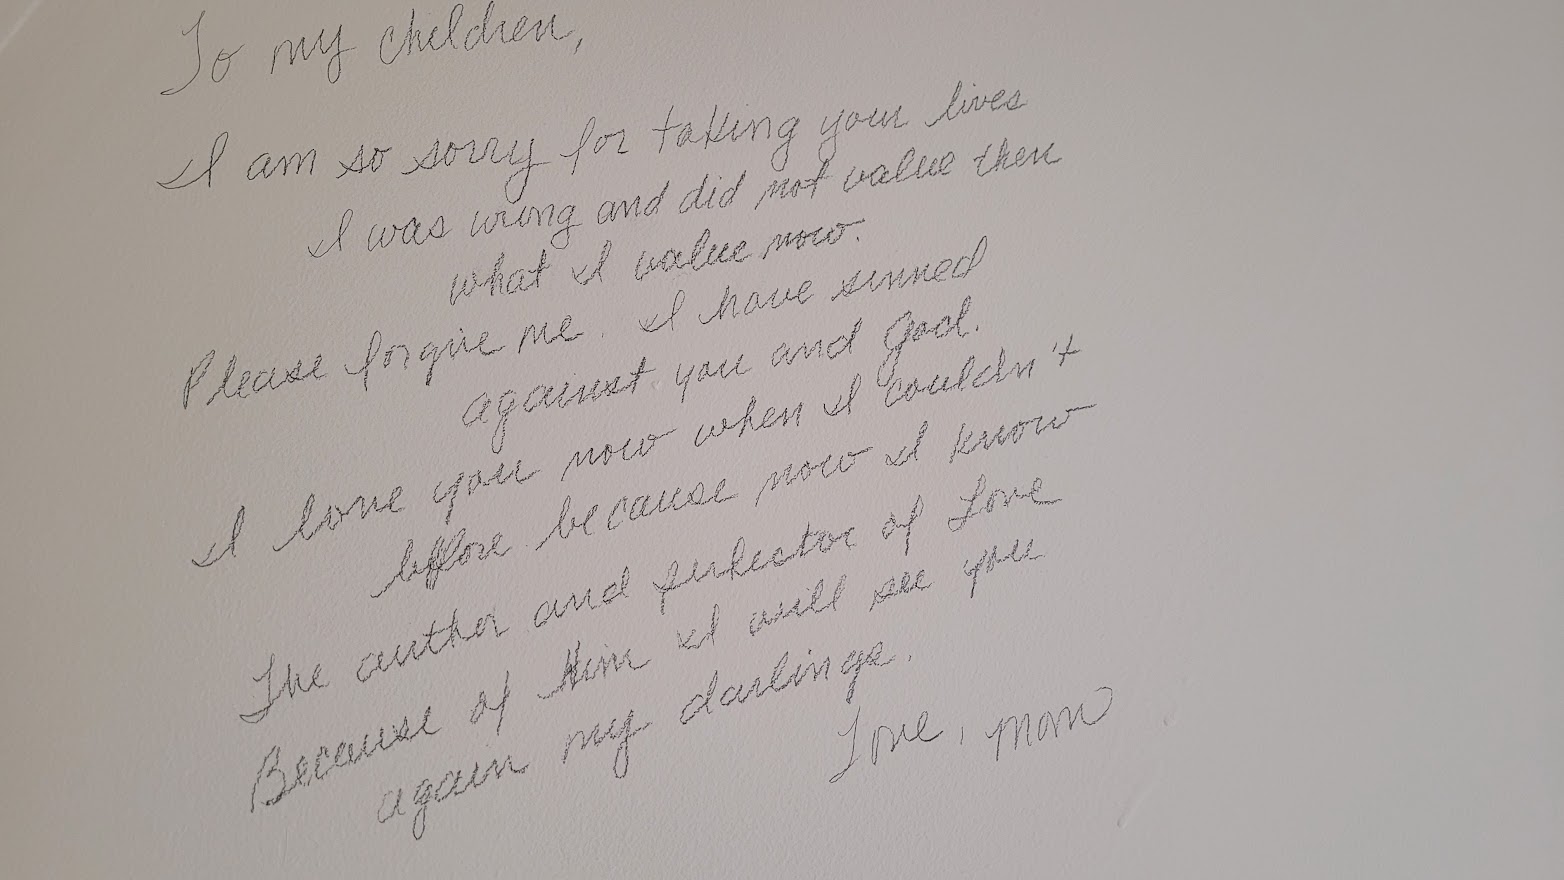 To my children,
I am so sorry for taking your lives
I was wrong and did not value then
what I value now.
Please forgive me. I have sinned
against you and God.
I love you now when I couldn't
before because now I know
The author and perfector of Love
Because of Him I will see you
again my darlings.
Love, Mom